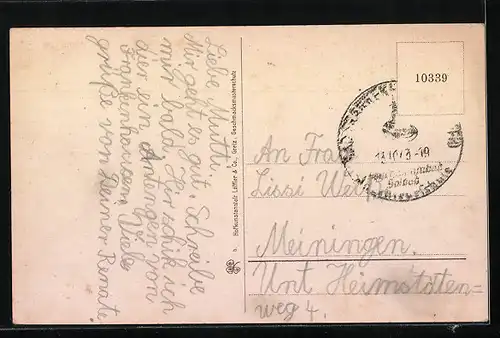 Liebe Mutti,
Mir geht es gut. Schreibe
mir bald. Hir schik ich
dier ein Antengen von
Frankenhausen. Viele
grüße von Deiner Renate.
Hofkunstanstalt Löffler & Co., Greiz, Geschmacksmusterschutz
10339
An Frau
Lissi
Meiningen.
Unt Heimstäten=
weg 4.